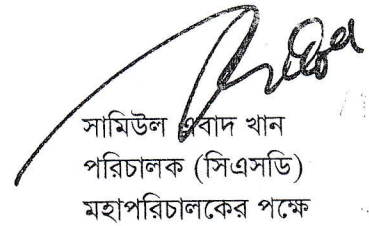 সামিউল এবাদ খান
পরিচালক (সিএসডি)
মহাপরিচালকের পক্ষে